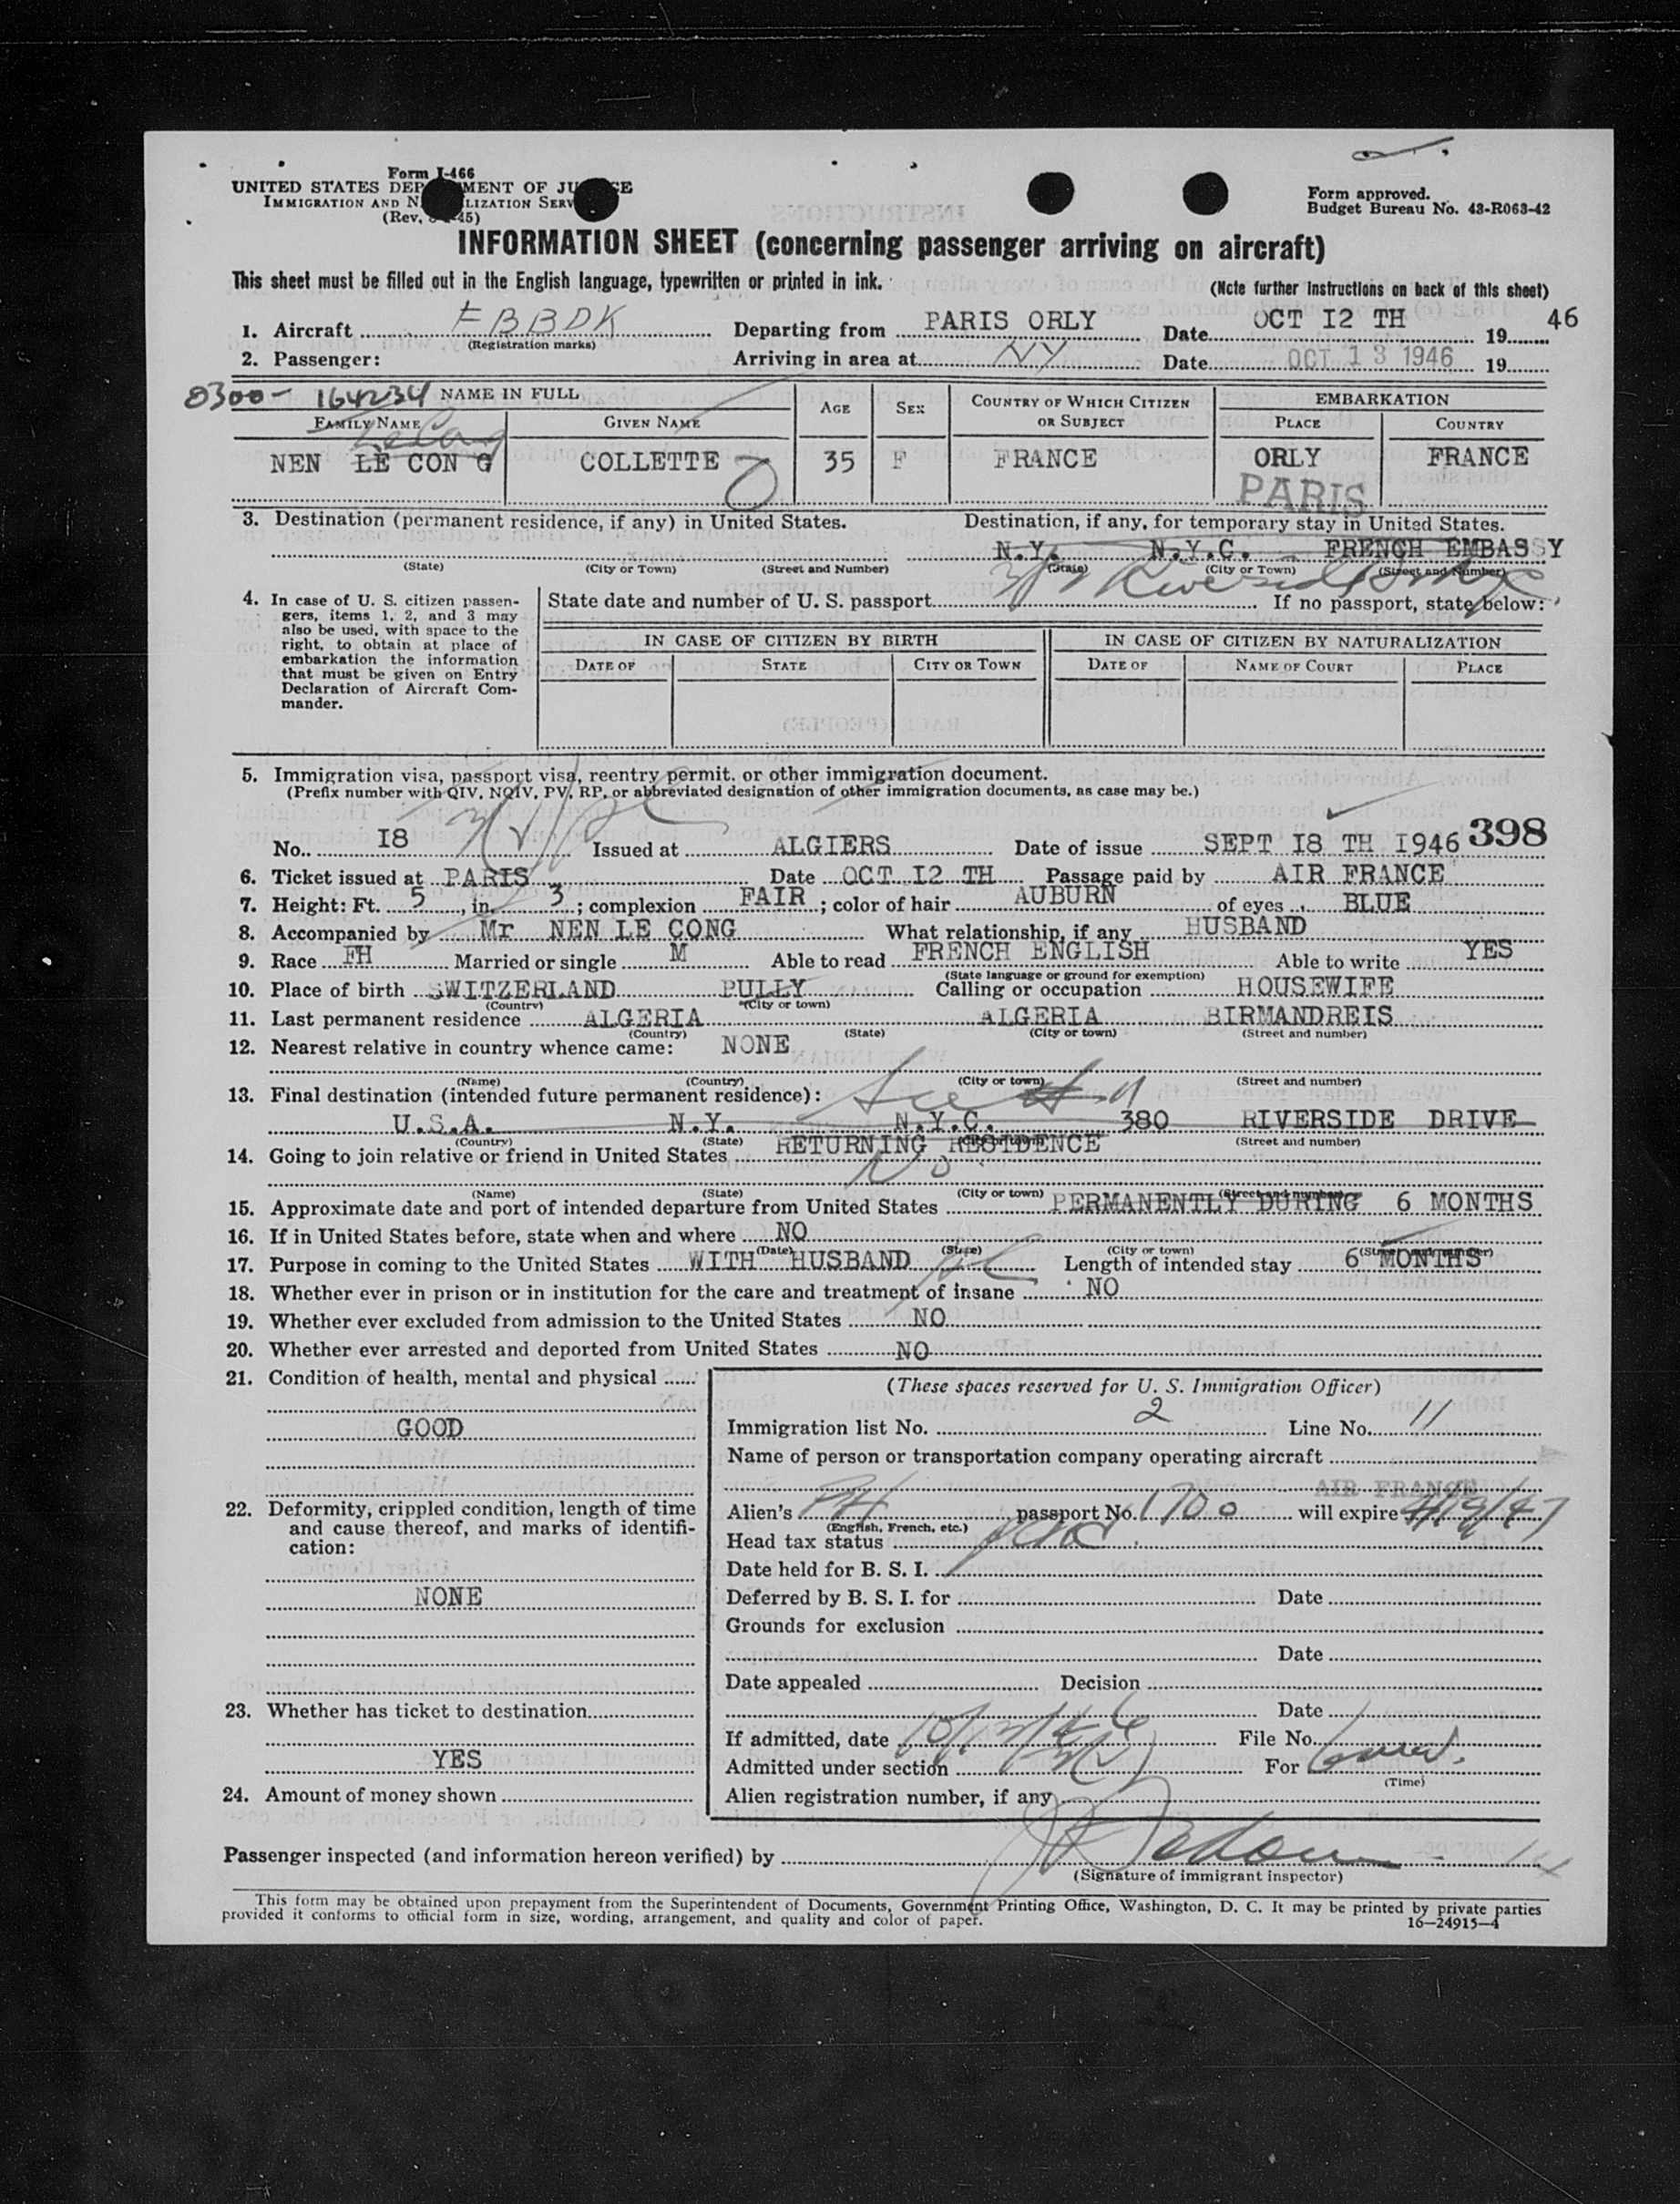 Form I-466
UNITED STATES DEP MENT OF JU CE
IMMIGRATION AND N LIZATION SERV
(Rev. 45)
Form approved.
Budget Bureau No. 43-R063-42
INFORMATION SHEET (concerning passenger arriving on aircraft)
This sheet must be filled out in the English language, typewritten or printed in ink. (Note further instructions on back of this sheet)
1. Aircraft FBBDK Departing from PARIS ORLY Date OCT I2 TH 1946
(Registration marks)
2. Passenger: Arriving in area at NY Date OCT 13 1946 19
0300- 164234 NAME IN FULL AGE SEX COUNTRY OF WHICH CITIZEN OR SUBJECT EMBARKATION
FAMILY NAME GIVEN NAME PLACE COUNTRY
Le Cong
NEN LE CON G COLLETTE 35 F FRANCE ORLY FRANCE
PARIS
3. Destination (permanent residence, if any) in United States. Destination, if any, for temporary stay in United States.
N.Y. N.Y.C. FRENCH EMBASSY
(State) (City or Town) (Street and Number) (State) (City or Town) (Street and Number)
Riverside Drive
4. In case of U. S. citizen passen-
gers, items 1, 2, and 3 may
also be used, with space to the
right, to obtain at place of
embarkation the information
that must be given on Entry
Declaration of Aircraft Com-
mander.
State date and number of U. S. passport If no passport, state below:
IN CASE OF CITIZEN BY BIRTH IN CASE OF CITIZEN BY NATURALIZATION
DATE OF STATE CITY OR TOWN DATE OF NAME OF COURT PLACE
5. Immigration visa, passport visa, reentry permit, or other immigration document.
(Prefix number with QIV, NQIV, PV, RP, or abbreviated designation of other immigration documents, as case may be.)
No. I8 Issued at ALGIERS Date of issue SEPT I8 TH I946 398
6. Ticket issued at PARIS Date OCT I2 TH Passage paid by AIR FRANCE
7. Height: Ft. 5, in. 3; complexion FAIR; color of hair AUBURN of eyes BLUE
8. Accompanied by Mr NEN LE CONG What relationship, if any HUSBAND
9. Race FH Married or single M Able to read FRENCH ENGLISH Able to write YES
(State language or ground for exemption)
10. Place of birth SWITZERLAND PULLY Calling or occupation HOUSEWIFE
(Country) (City or town)
11. Last permanent residence ALGERIA ALGERIA BIRMANDREIS
(Country) (State) (City or town) (Street and number)
12. Nearest relative in country whence came: NONE
(Name) (Country) (City or town) (Street and number)
13. Final destination (intended future permanent residence):
U.S.A. N.Y. N.Y.C. 380 RIVERSIDE DRIVE
(Country) (State) (City or town) (Street and number)
14. Going to join relative or friend in United States RETURNING RESIDENCE
No
(Name) (State) (City or town) (Street and number)
15. Approximate date and port of intended departure from United States PERMANENTLY DURING 6 MONTHS
16. If in United States before, state when and where NO
(Date) (State) (City or town) (Street and number)
17. Purpose in coming to the United States WITH HUSBAND Length of intended stay 6 MONTHS
18. Whether ever in prison or in institution for the care and treatment of insane NO
19. Whether ever excluded from admission to the United States NO
20. Whether ever arrested and deported from United States NO
21. Condition of health, mental and physical
GOOD
22. Deformity, crippled condition, length of time
and cause thereof, and marks of identifi-
cation:
NONE
23. Whether has ticket to destination
YES
24. Amount of money shown
(These spaces reserved for U. S. Immigration Officer)
Immigration list No. 2 Line No. 11
Name of person or transportation company operating aircraft
AIR FRANCE
Alien's passport No. 1700 will expire
(English, French, etc.)
Head tax status
Date held for B. S. I.
Deferred by B. S. I. for Date
Grounds for exclusion
Date
Date appealed Decision
Date
If admitted, date 10/13/46 File No.
Admitted under section 3(2) For
(Time)
Alien registration number, if any
Passenger inspected (and information hereon verified) by
(Signature of immigrant inspector)
This form may be obtained upon prepayment from the Superintendent of Documents, Government Printing Office, Washington, D. C. It may be printed by private parties
provided it conforms to official form in size, wording, arrangement, and quality and color of paper.
16—24915-4